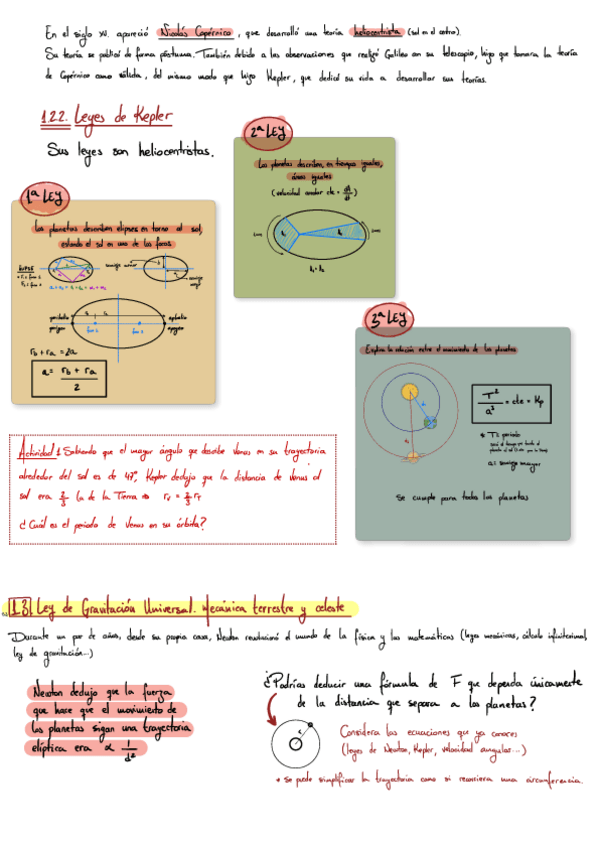 En el siglo XV. apareció Nicolás Copérnico, que desarrolló una teoría heliocentrista (sol en el centro).
Su teoría se publicó de forma póstuma. También debido a las observaciones que realizó Galileo con su telescopio, hizo que tomara la teoría
de Copérnico como válida, del mismo modo que hizo Kepler, que dedicó su vida a desarrollar sus teorías.
1.2.2. Leyes de Kepler
Sus leyes son heliocentristas.
2ª LEY
Los planetas describen, en tiempos iguales,
áreas iguales
(velocidad areolar cte =
1ª LEY
Los planetas describen elipses en torno al sol,
estando el sol en uno de los focos
semieje menor
semieje mayor
perihelio
perigeo
afhelio
apogeo
foco 1
foco 2
rb + ra = 2a
a = rb + ra / 2
3ª LEY
Explica la relación entre el movimiento de los planetas
T² / a³ = cte = Kp
* T = periodo
a = semieje mayor
Se cumple para todos los planetas
Actividad 1. Sabiendo que el mayor ángulo que describe Venus en su trayectoria
alrededor del sol es de 47°, Kepler dedujo que la distancia de Venus al
sol era 2/3 la de la Tierra
¿Cuál es el periodo de Venus en su órbita?
1.3. Ley de Gravitación Universal. Mecánica terrestre y celeste
Durante un par de años, desde su propia casa, Newton revolucionó el mundo de la física y las matemáticas (leyes mecánicas, cálculo infinitesimal,
ley de gravitación...)
Newton dedujo que la fuerza
que hace que el movimiento de
los planetas sigan una trayectoria
elíptica era ∝ 1/d²
¿Podrías deducir una fórmula de F que dependa únicamente
de la distancia que separa a los planetas?
Considera las ecuaciones que ya conoces
(leyes de Newton, Kepler, velocidad angular...)
* se puede simplificar la trayectoria como si recorriera una circunferencia.